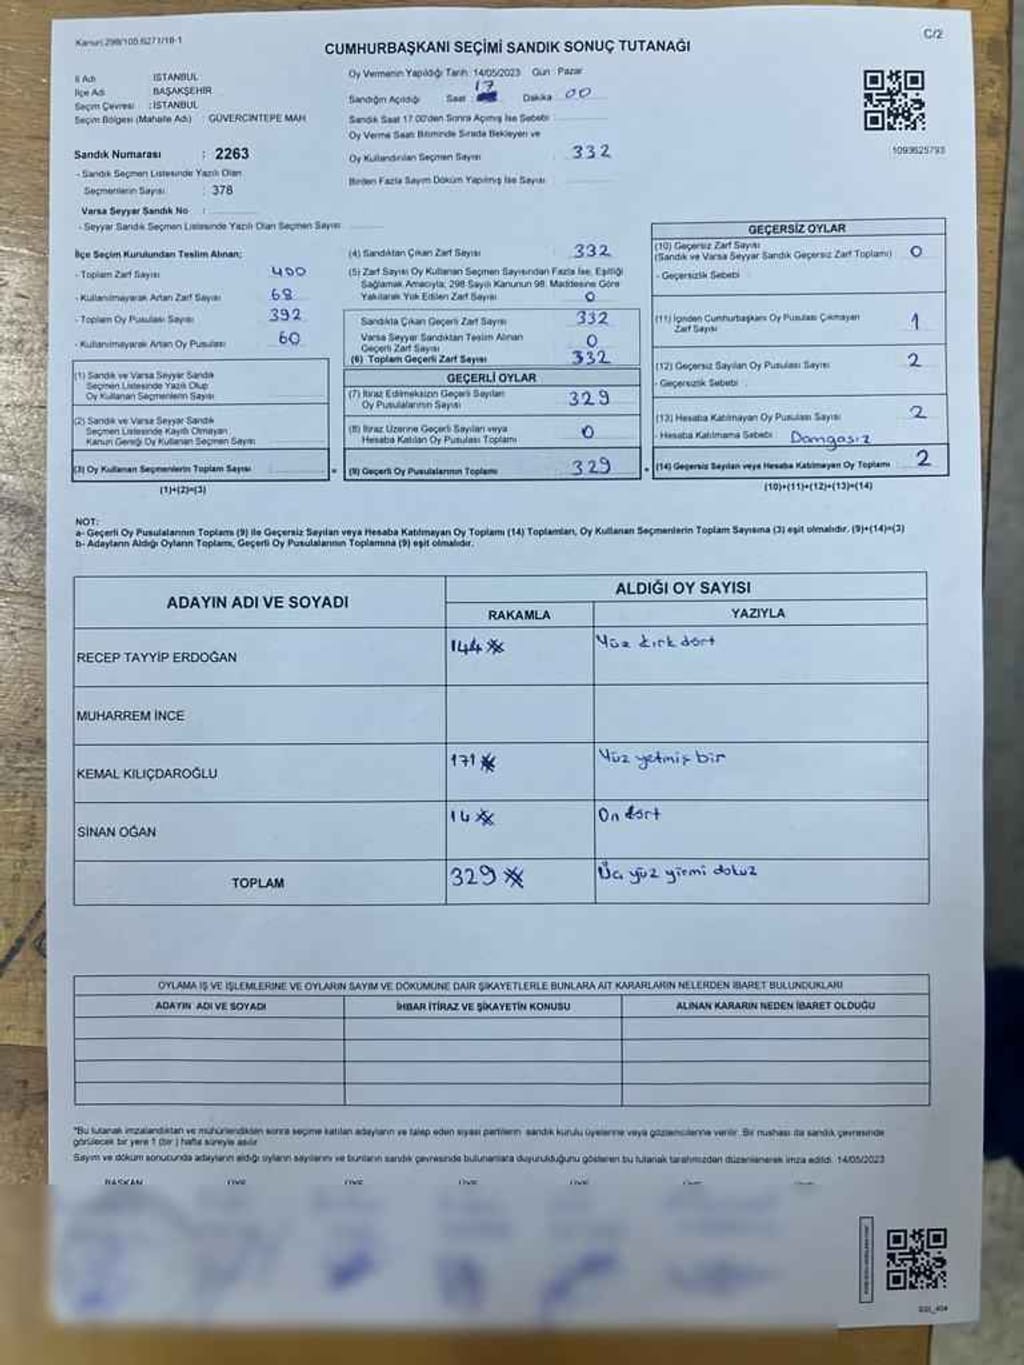 Kanun 298/105 6271/18-1
C/2
CUMHURBAŞKANI SEÇİMİ SANDIK SONUÇ TUTANAĞI
İl Adı İSTANBUL
İlçe Adı BAŞAKŞEHİR
Seçim Çevresi : İSTANBUL
Seçim Bölgesi (Mahalle Adı) : GÜVERCİNTEPE MAH
Sandık Numarası : 2263
- Sandık Seçmen Listesinde Yazılı Olan
Seçmenlerin Sayısı : 378
Varsa Seyyar Sandık No :
- Seyyar Sandık Seçmen Listesinde Yazılı Olan Seçmen Sayısı
Oy Vermenin Yapıldığı Tarih : 14/05/2023 Gün : Pazar
Sandığın Açıldığı Saat : 17 Dakika 00
Sandık Saat 17.00'den Sonra Açılmış İse Sebebi
Oy Verme Saati Bitiminde Sırada Bekleyen ve
Oy Kullandırılan Seçmen Sayısı 332
Birden Fazla Sayım Döküm Yapılmış İse Sayısı
1093625793
İlçe Seçim Kurulundan Teslim Alınan;
- Toplam Zarf Sayısı 400
- Kullanılmayarak Artan Zarf Sayısı 68
- Toplam Oy Pusulası Sayısı 392
- Kullanılmayarak Artan Oy Pusulası 60
(1) Sandık ve Varsa Seyyar Sandık
Seçmen Listesinde Yazılı Olup
Oy Kullanan Seçmenlerin Sayısı
(2) Sandık ve Varsa Seyyar Sandık
Seçmen Listesinde Kayıtlı Olmayan
Kanun Gereği Oy Kullanan Seçmen Sayısı
(3) Oy Kullanan Seçmenlerin Toplam Sayısı
(1)+(2)=(3)
(4) Sandıktan Çıkan Zarf Sayısı 332
(5) Zarf Sayısı Oy Kullanan Seçmen Sayısından Fazla İse, Eşitliği
Sağlamak Amacıyla; 298 Sayılı Kanunun 98. Maddesine Göre
Yakılarak Yok Edilen Zarf Sayısı 0
Sandıkta Çıkan Geçerli Zarf Sayısı 332
Varsa Seyyar Sandıktan Teslim Alınan
Geçerli Zarf Sayısı 0
(6) Toplam Geçerli Zarf Sayısı 332
GEÇERLİ OYLAR
(7) İtiraz Edilmeksizin Geçerli Sayılan
Oy Pusulalarının Sayısı 329
(8) İtiraz Üzerine Geçerli Sayılan veya
Hesaba Katılan Oy Pusulası Toplamı 0
(9) Geçerli Oy Pusulalarının Toplamı 329
GEÇERSİZ OYLAR
(10) Geçersiz Zarf Sayısı
(Sandık ve Varsa Seyyar Sandık Geçersiz Zarf Toplamı) 0
- Geçersizlik Sebebi
(11) İçinden Cumhurbaşkanı Oy Pusulası Çıkmayan
Zarf Sayısı 1
(12) Geçersiz Sayılan Oy Pusulası Sayısı 2
- Geçersizlik Sebebi
(13) Hesaba Katılmayan Oy Pusulası Sayısı 2
- Hesaba Katılmama Sebebi Damgasız
(14) Geçersiz Sayılan veya Hesaba Katılmayan Oy Toplamı 2
(10)+(11)+(12)+(13)=(14)
NOT:
a- Geçerli Oy Pusulalarının Toplamı (9) ile Geçersiz Sayılan veya Hesaba Katılmayan Oy Toplamı (14) Toplamları, Oy Kullanan Seçmenlerin Toplam Sayısına (3) eşit olmalıdır. (9)+(14)=(3)
b- Adayların Aldığı Oyların Toplamı, Geçerli Oy Pusulalarının Toplamına (9) eşit olmalıdır.
ADAYIN ADI VE SOYADI
ALDIĞI OY SAYISI
RAKAMLA YAZIYLA
RECEP TAYYİP ERDOĞAN 144 Yüz kırk dört
MUHARREM İNCE
KEMAL KILIÇDAROĞLU 171 Yüz yetmiş bir
SİNAN OĞAN 14 On dört
TOPLAM 329 Üç yüz yirmi dokuz
OYLAMA İŞ VE İŞLEMLERİNE VE OYLARIN SAYIM VE DÖKÜMÜNE DAİR ŞİKAYETLERLE BUNLARA AİT KARARLARIN NELERDEN İBARET BULUNDUKLARI
ADAYIN ADI VE SOYADI İHBAR İTİRAZ VE ŞİKAYETİN KONUSU ALINAN KARARIN NEDEN İBARET OLDUĞU
*Bu tutanak imzalandıktan ve mühürlendikten sonra seçime katılan adayların ve talep eden siyasi partilerin sandık kurulu üyelerine veya gözlemcilerine verilir. Bir nüshası da sandık çevresinde
görülecek bir yere 1 (bir ) hafta süreyle asılır.
Sayım ve döküm sonucunda adayların aldığı oyların sayılarını ve bunların sandık çevresinde bulunanlara duyurulduğunu gösteren bu tutanak tarafımızdan düzenlenerek imza edildi. 14/05/2023
BAŞKAN ÜYE ÜYE ÜYE ÜYE ÜYE ÜYE